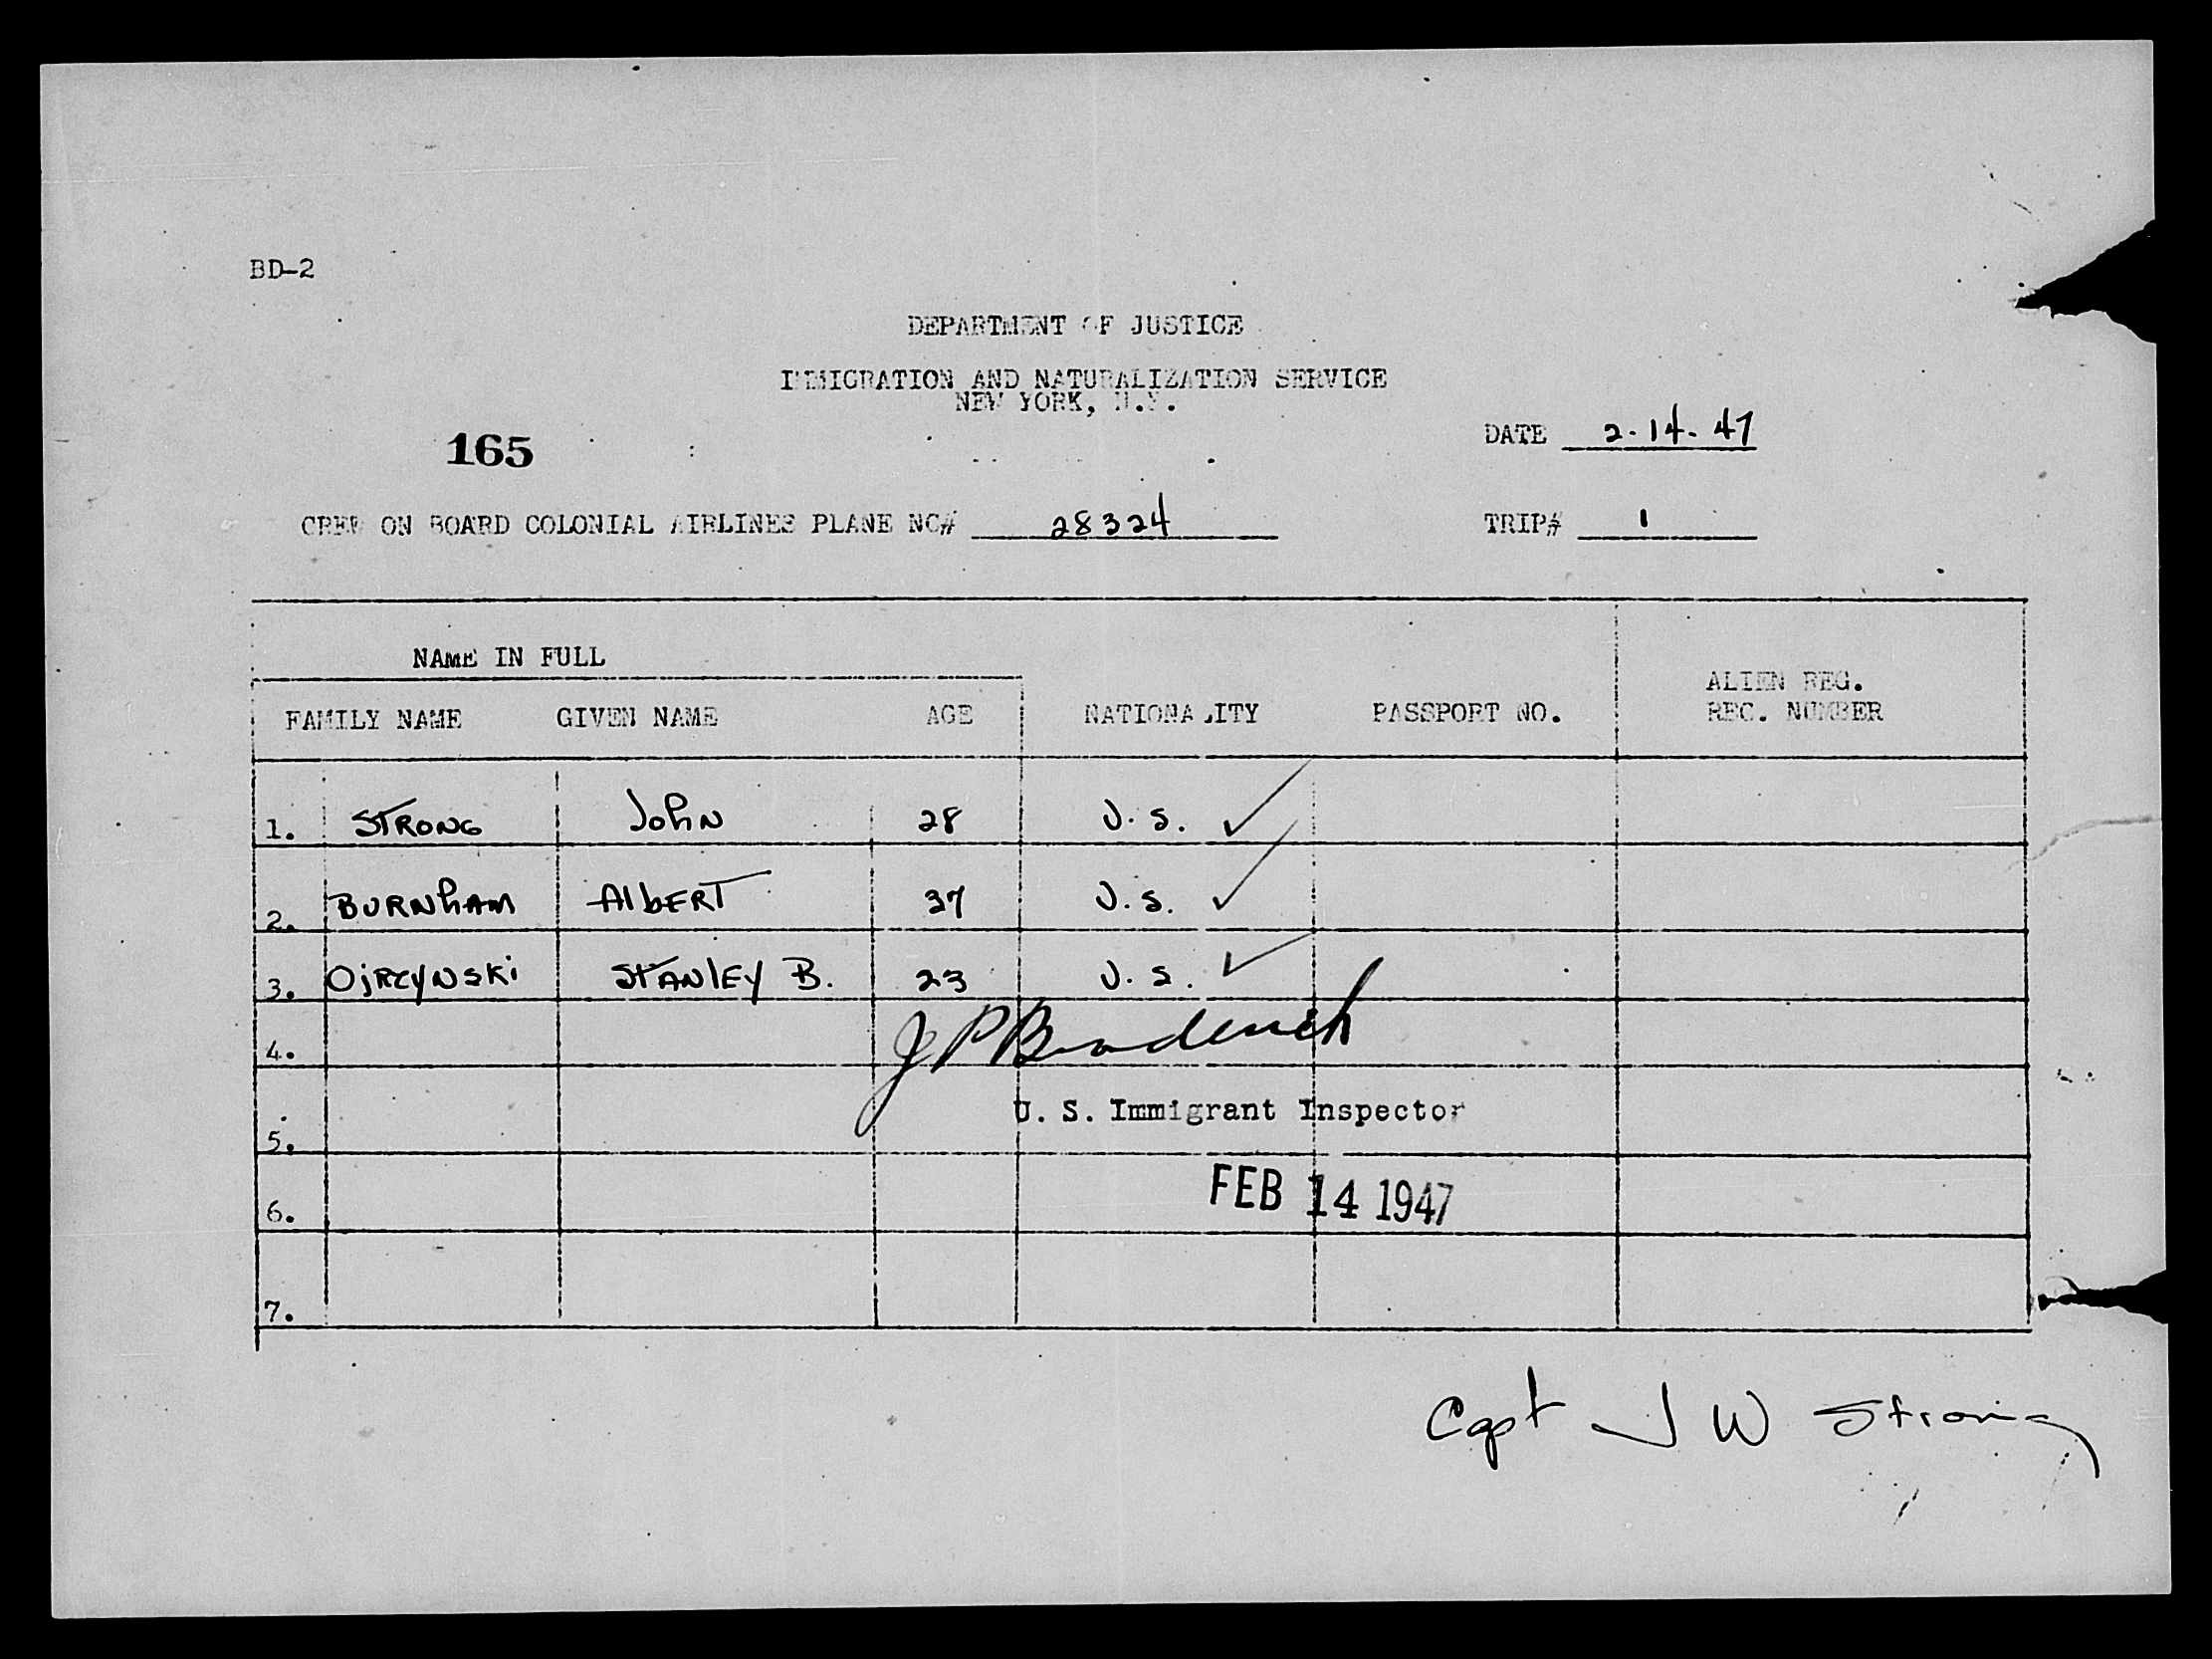 BD-2
DEPARTMENT OF JUSTICE
IMMIGRATION AND NATURALIZATION SERVICE
NEW YORK, N.Y.
165
DATE 2-14-47
CREW ON BOARD COLONIAL AIRLINES PLANE NC# 28324 TRIP# 1
NAME IN FULL
FAMILY NAME GIVEN NAME AGE NATIONALITY PASSPORT NO. ALIEN REG. REC. NUMBER
1. STRONG JOHN 28 U.S. ✓
2. BURNHAM ALBERT 37 U.S. ✓
3. OJRZYNSKI STANLEY B. 23 U.S. ✓
4. J P
5. U. S. Immigrant Inspector
6. FEB 14 1947
7.
Capt J W Strong